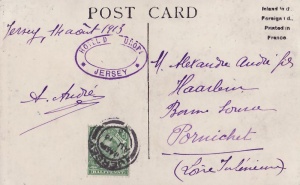 POST CARD
Inland ½d.
Foreign 1d.
Printed in
France
Jersey, 14 août 1913
JERSEY
A. André
M. Alexandre André fils
Haarlem
Bonne Source
Pornichet
(Loire Inférieure)